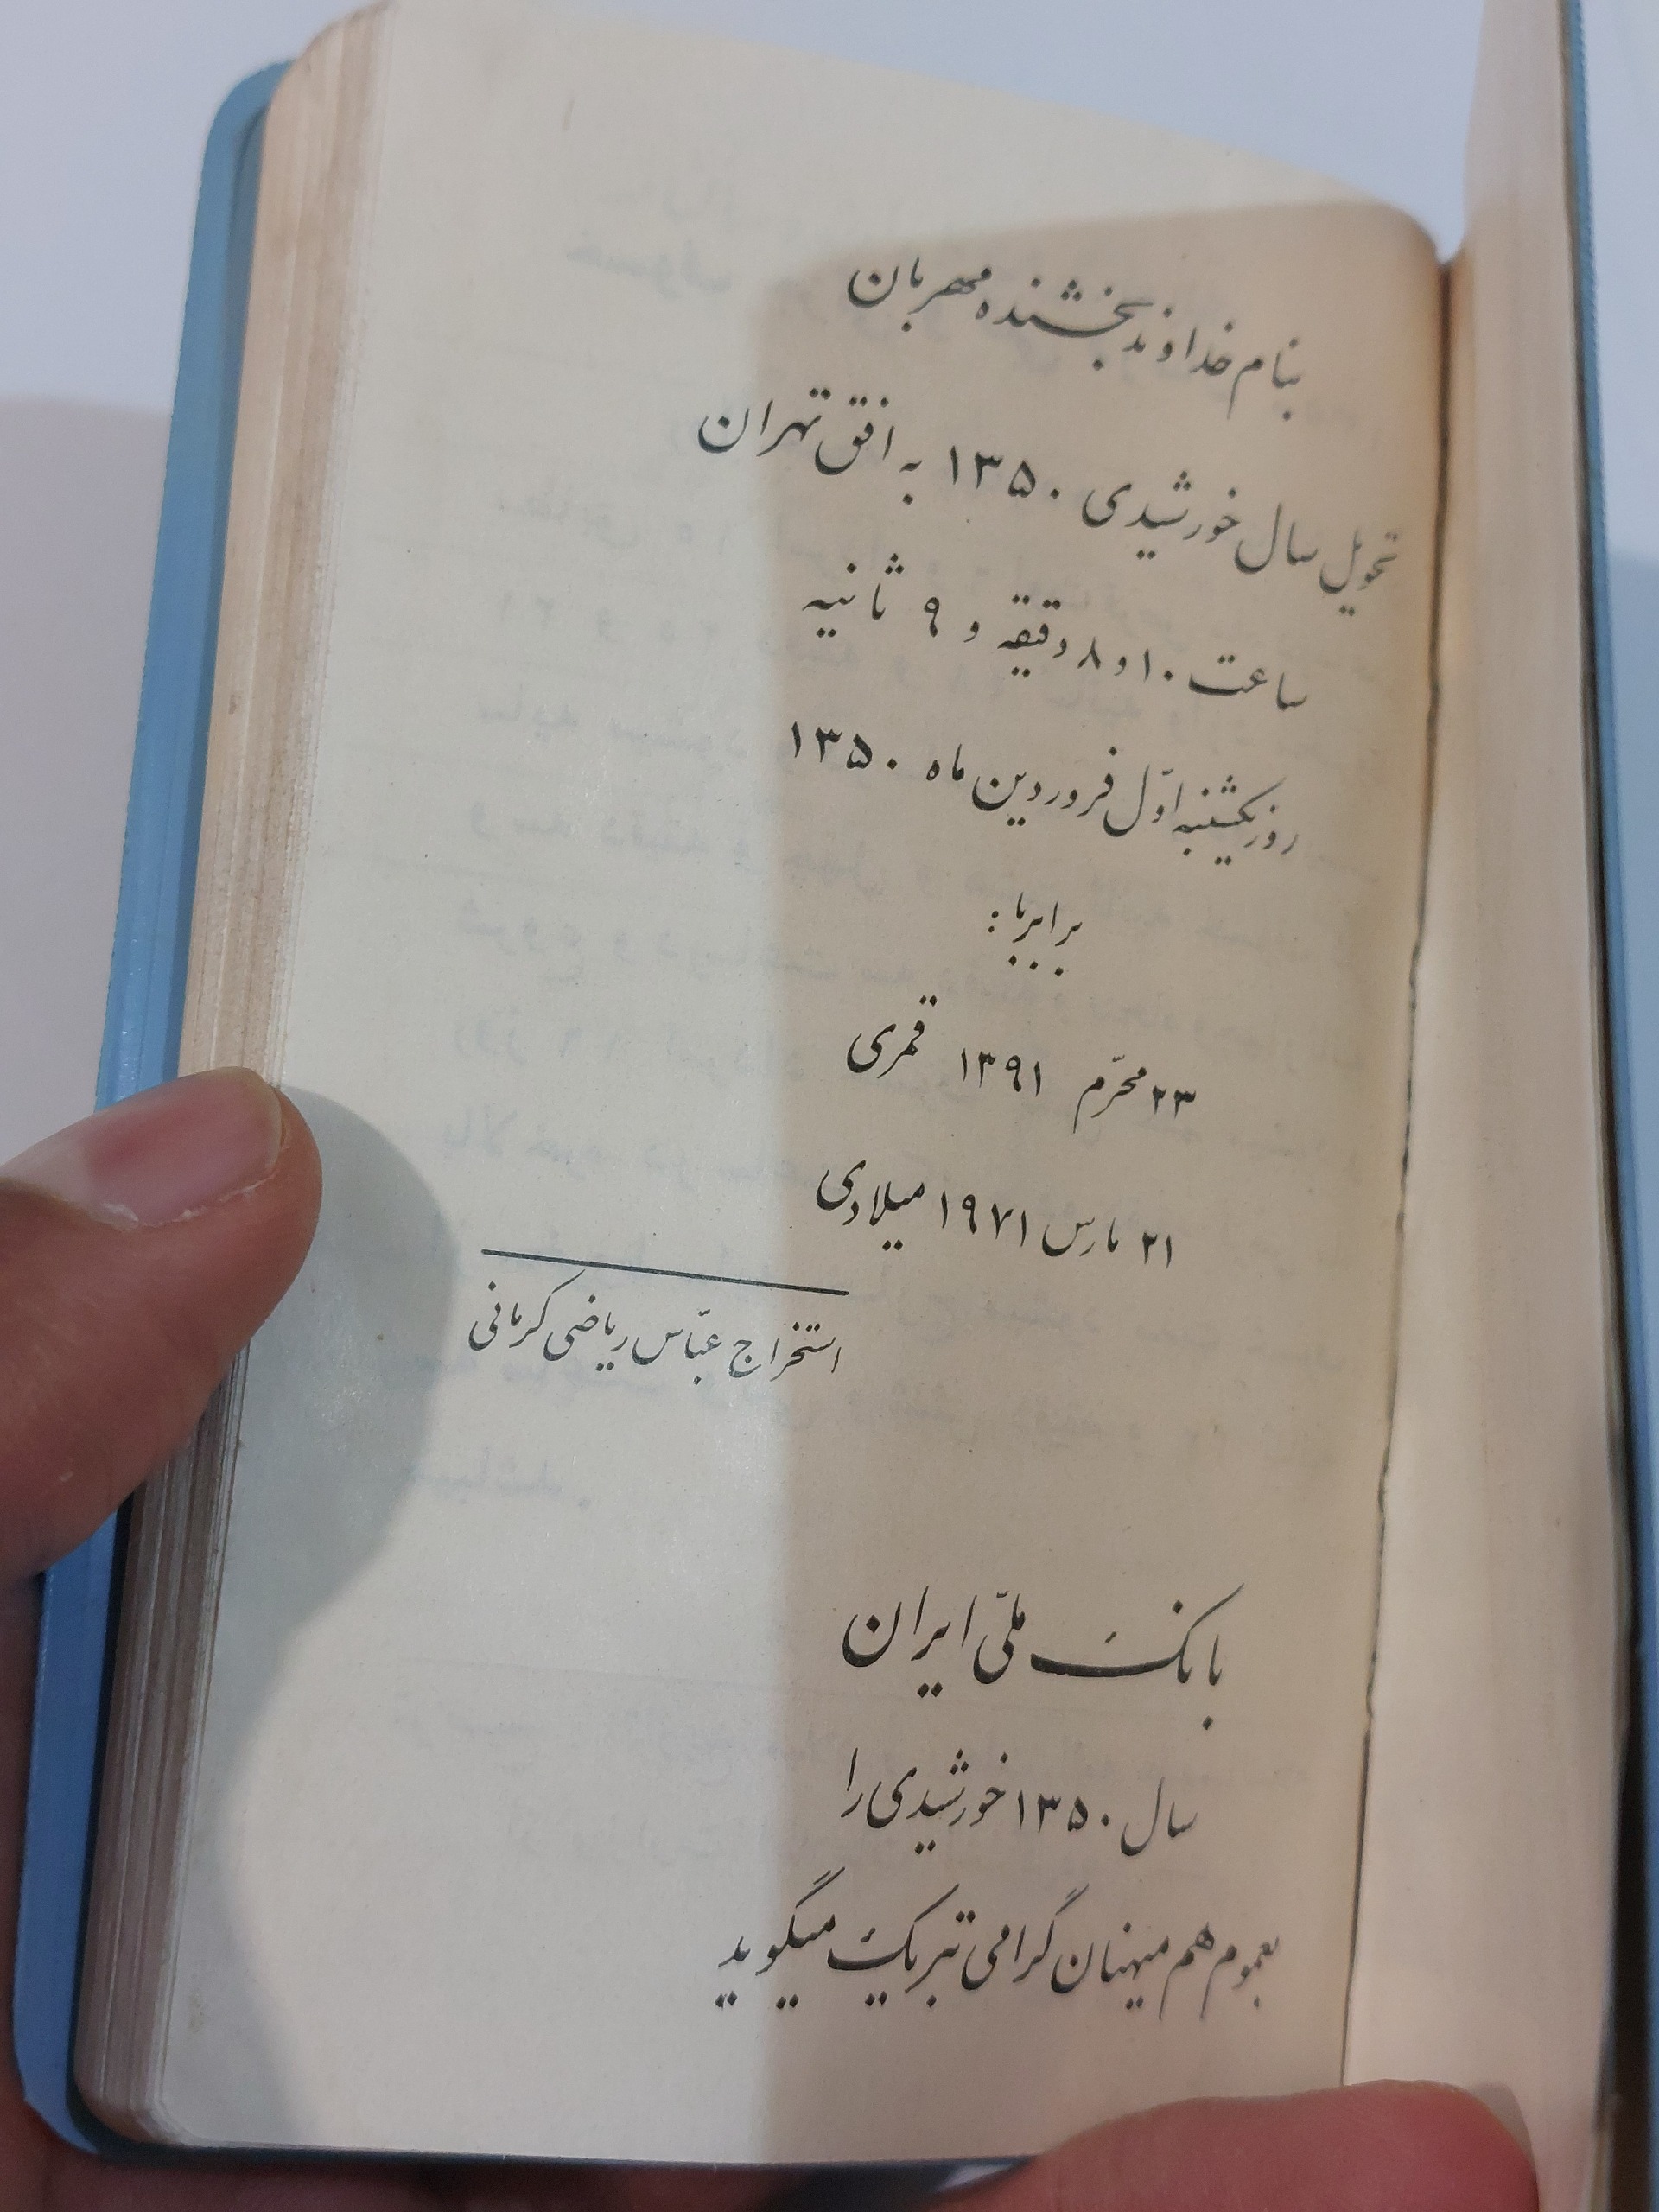 بنام خداوند بخشنده مهربان
تحویل سال خورشیدی ۱۳۵۰ به افق تهران
ساعت ۱۰ و ۸ دقیقه و ۹ ثانیه
روز یکشنبه اوّل فروردین ماه ۱۳۵۰
برابر با :
۲۳ محرّم ۱۳۹۱ قمری
۲۱ مارس ۱۹۷۱ میلادی
استخراج عبّاس ریاضی کرمانی
بانک ملّی ایران
سال ۱۳۵۰ خورشیدی را
بعموم هم میهنان گرامی تبریک میگوید